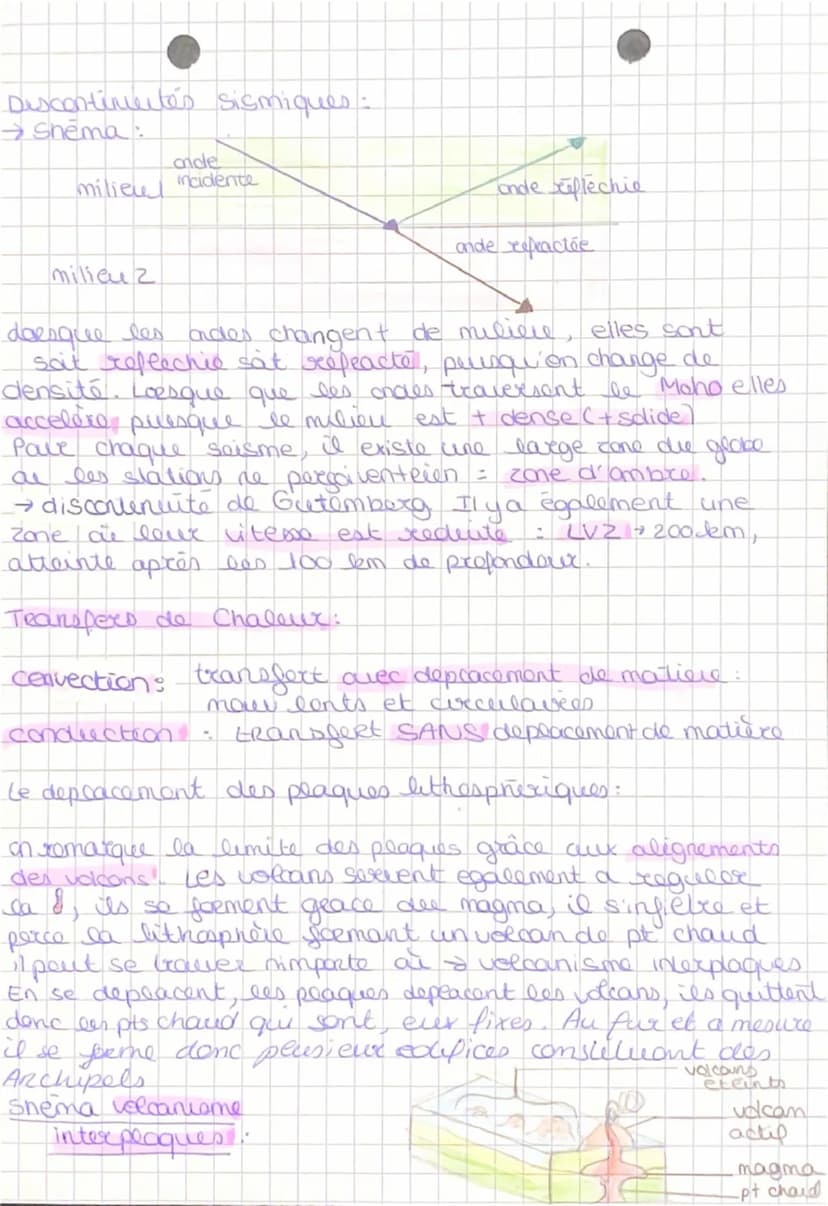 Discontinuités sismiques :
→ Shéma :
onde
incidente
milieu 1
onde réfléchie
onde refractée
milieu 2
Lorsque les ondes changent de milieu, elles sont
soit reflechie soit refracté, puisqu'on change de
densité. Lorsque que les ondes traversent le Moho elles
accelère, puisque le milieu est + dense (+ solide)
Pour chaque seisme, il existe une large zone du globe
où les stations ne perçoivent rien = zone d'ombre.
→ discontinuité de Gutemberg Il y a également une
zone où leur vitesse est reduite : LVZ → 200 km,
atteinte après les 100 km de profondeur.
Transfers de Chaleur :
convection : transfert avec deplacement de matiere :
mouv lents et circulaires
conduction : transfert SANS deplacement de matière
Le deplacement des plaques lithosphériques :
on remarque la limite des plaques grâce aux alignements
des volcans. Les volcans servent egalement a reguler
la, ils se forment grace au magma, il s'infiltre et
perce la lithosphère formant un volcan de pt chaud
il peut se trouver nimporte où → volcanisme interplaques
En se deplacent, les plaques deplacent les volcans, ils quittent
donc les pts chaud qui sont, eux fixes. Au fur et a mesure
il se forme donc plusieur edifices constituant des
Archipels
Shéma volcanisme
interplaques :
volcans
eteints
volcan
actif
magma
pt chaud